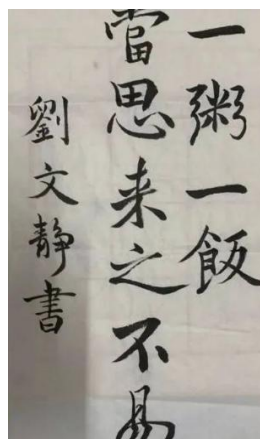 一粥一飯
當思来之不易
劉文靜書